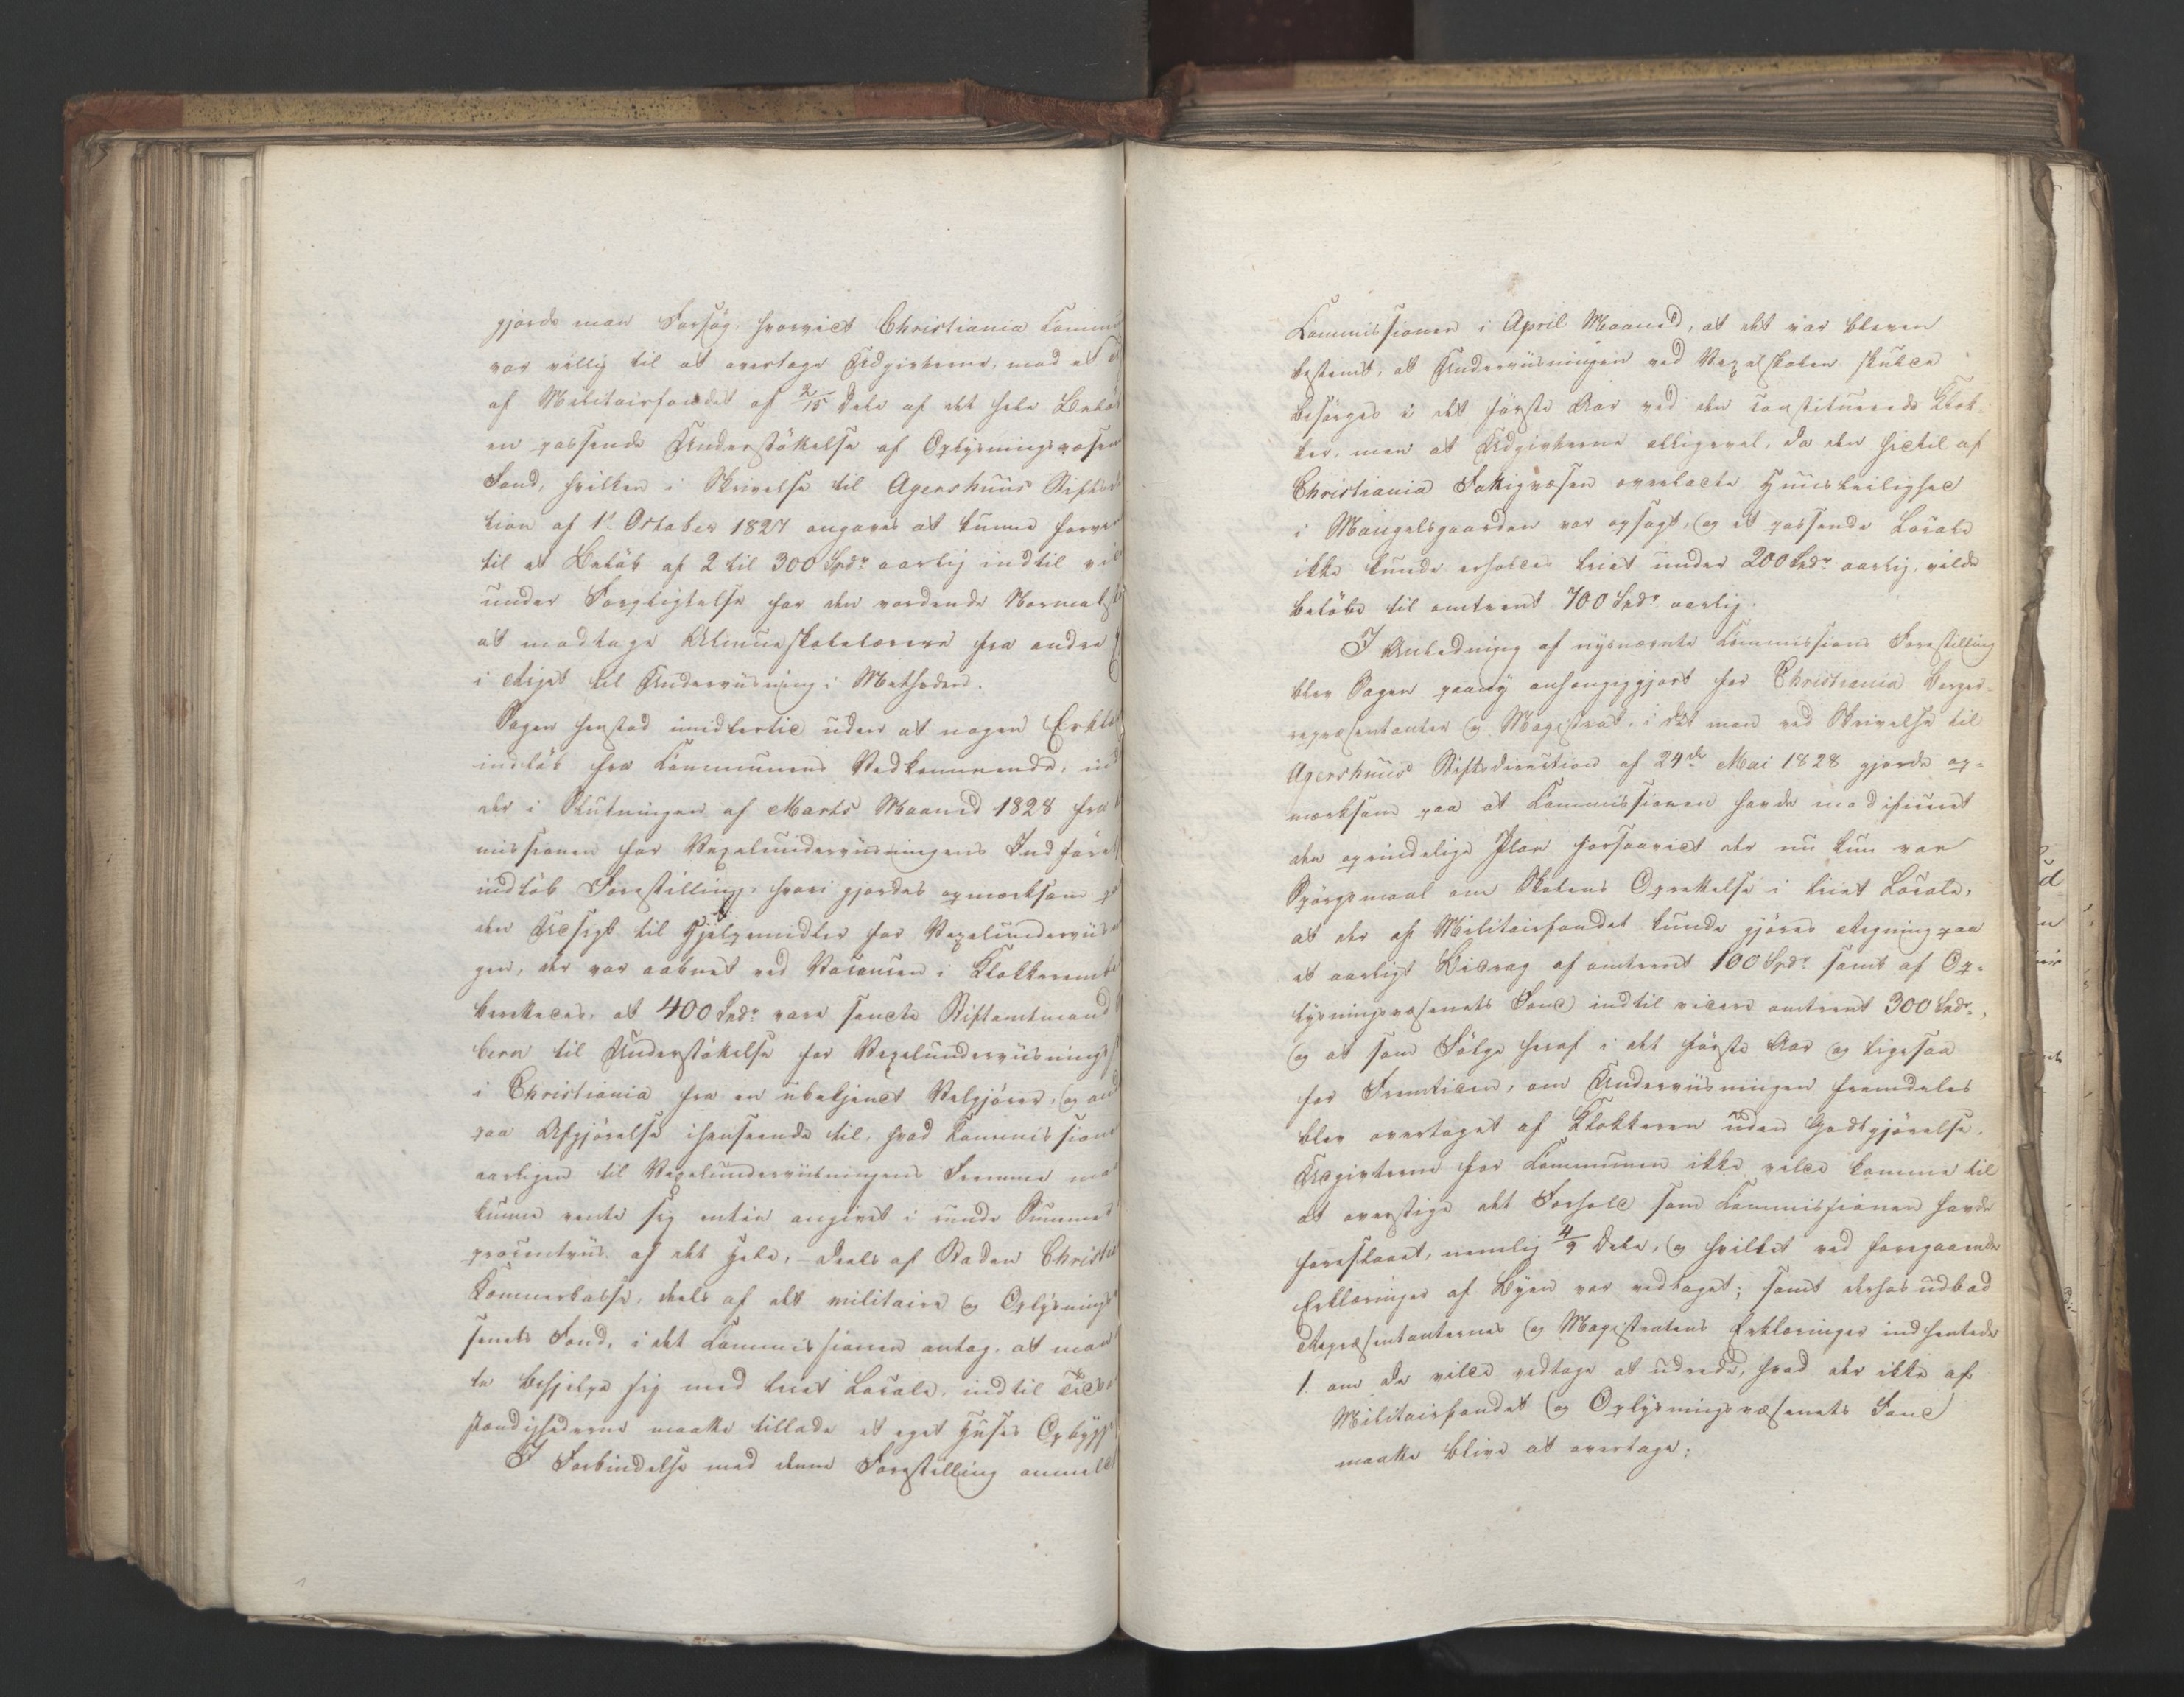 gjorde man Forsøg, hvorvidt Christiania Commu
var villig til at overtage Udgivterne, mod at
af Militairfondet af 2/15 Dele af det hele Beløb
en passende Understøttelse af Oplysningsvæsen
Fond, hvilken i Skrivelse til Agershuus Stiftsd
tion af 1st October 1827 angaves at kunne
til et Beløb af 2 til 300 Spdr aarlig indtil vi
under Forpligtelse for den vordende Normals
at modtage Almueskolelærere fra andre
i Riget til Underviisning i Methoden.
Sagen henstod imidlertid uden at nogen Erklæ
indløb fra Communens Vedkommende, in
der i Slutningen af Marts Maaned 1828 fra
missionen for Vexelunderviisningens Indførel
indløb Forestilling, hvori gjordes opmærksom p
den Udsigt til Hjelpemidler for Vexelunderviis
gen, der var aabnet ved Vacancen i Klokkerembe
berettedes, at 400 Spdr vare sendte Stiftamtmand
bern til Understøttelse for Vexelunderviisnings
i Christiania fra en ubekjendt Velgjører, og
paa Afgjørelse ihenseende til, hvad Commission
aarligen til Vexelunderviisningens Fremme
kunne vente sig enten angivet i runde Summer
procentviis af det Hele, deels af Staden Christi
Kæmnerkasse, deels af det militaire og Oplysnings
senets Fond, i det Commissionen antog, at man
te behjelpe sig med leiet Locale, indtil Tids
stændighederne maatte tillade et eget Huses Opbygg
I Forbindelse med denne Forestilling anmeldt
Commissionen i April Maaned, at det var bleven
bestemt, at Underviisningen ved Vexelskolen skulde
besørges i det første Aar ved den constituerede Klok-
ker, men at Udgivterne alligevel, da den hidtil af
Christiania Fattigvæsen overladte Huusleilighed
i Mangelsgaarden var opsagt, og et passende Locale
ikke kunde erholdes leiet under 200 Spdr aarlig, vilde
beløbe til omtrent 700 Spdr aarlig.
I Anledning af nysnævnte Commissions Forestilling
blev Sagen paany anhængiggjort for Christiania Borger-
repræsentanter og Magistrat, i det man ved Skrivelse til
Agershuus Stiftsdirection af 24de Mai 1828 gjorde op-
mærksom paa at Commissionen havde modificeret
den oprindelige Plan forsaavidt der nu kun var
Spørgsmaal om Skolens Oprettelse i leiet Locale,
at der af Militairfondet kunde gjøres Regning paa
et aarligt Bidrag af omtrent 100 Spdr samt af Op-
lysningsvæsenets Fond indtil videre omtrent 300 Spdr,
og at som Følge heraf i det første Aar og ligesaa
for Fremtiden, om Underviisningen fremdeles
blev overtaget af Klokkeren uden Godtgjørelse,
Udgivterne for Communen ikke vilde komme til
at overstige det Forhold som Commissionen havde
foreslaaet, nemlig 4/9 Dele, og hvilket ved foregaaende
Erklæringer af Byen var vedtaget; samt derhos udbad
Repræsentanternes og Magistratens Erklæringer indhentede
1. om de vilde vedtage at udrede, hvad der ikke af
Militairfondet og Oplysningsvæsenets Fond
maatte blive at overtage;